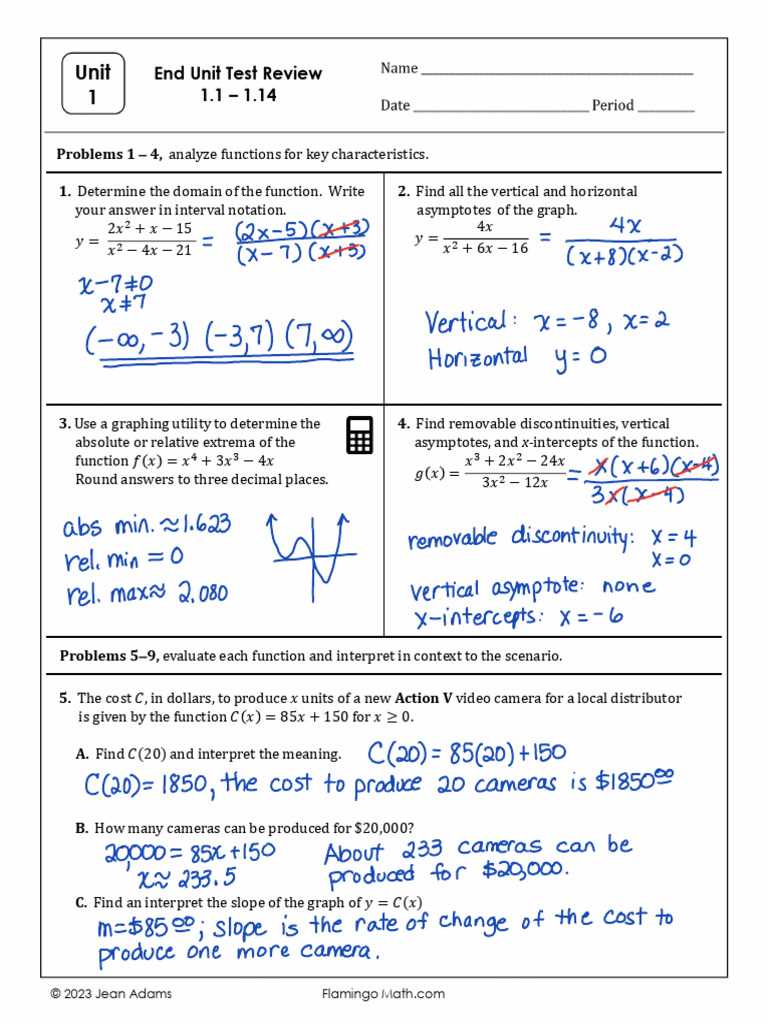 Unit
1
End Unit Test Review
1.1 – 1.14
Name ____________________
Date ____________________ Period __________
Problems 1 – 4, analyze functions for key characteristics.
1. Determine the domain of the function. Write
your answer in interval notation.
y = (2x² + x − 15)/(x² − 4x − 21) = (2x-5)(x+3)/(x-7)(x+3)
x-7≠0
x≠7
(-∞,-3) (-3,7) (7,∞)
2. Find all the vertical and horizontal
asymptotes of the graph.
y = 4x/(x² + 6x − 16) = 4x/(x+8)(x-2)
Vertical: x=-8, x=2
Horizontal y=0
3. Use a graphing utility to determine the
absolute or relative extrema of the
function f(x) = x⁴ + 3x³ − 4x
Round answers to three decimal places.
abs min. ≈1.623
rel. min = 0
rel. max≈ 2.080
4. Find removable discontinuities, vertical
asymptotes, and x-intercepts of the function.
g(x) = (x³ + 2x² − 24x)/(3x² − 12x) = x(x+6)(x-4)/3x(x-4)
removable discontinuity: x=4
x=0
vertical asymptote: none
x-intercepts: x=-6
Problems 5–9, evaluate each function and interpret in context to the scenario.
5. The cost C, in dollars, to produce x units of a new Action V video camera for a local distributor
is given by the function C(x) = 85x + 150 for x ≥ 0.
A. Find C(20) and interpret the meaning. C(20)= 85(20)+150
C(20)= 1850, the cost to produce 20 cameras is $1850⁰⁰
B. How many cameras can be produced for $20,000?
20,000 = 85x+150
x≈ 233.5
About 233 cameras can be
produced for $20,000.
C. Find an interpret the slope of the graph of y = C(x)
m=$85⁰⁰; slope is the rate of change of the cost to
produce one more camera.
© 2023 Jean Adams
Flamingo Math.com